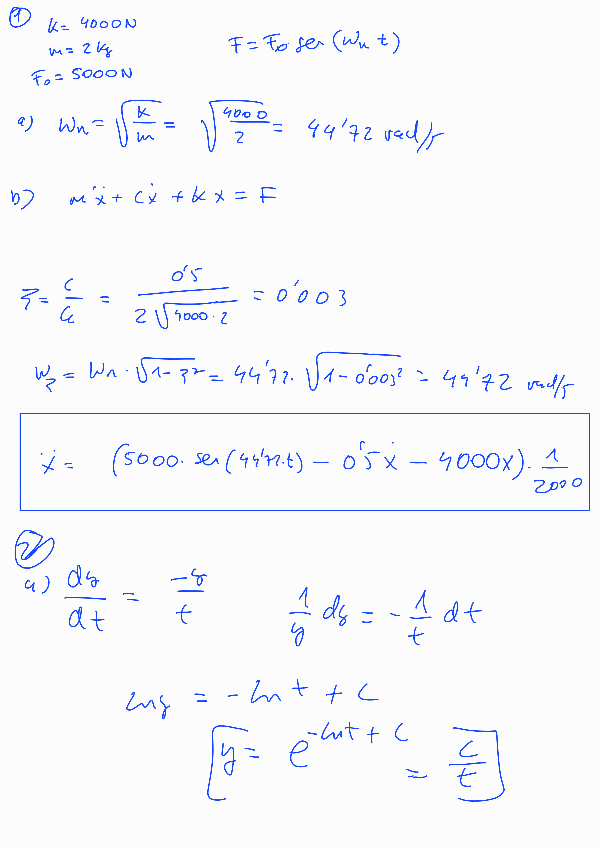 ① K = 4000N
m = 2 kg
F₀ = 5000N
F = F₀ sen (Wn t)
a) Wn = √(K/m) = √(4000/2) = 44'72 rad/s
b) mẍ + cẋ + kx = F
ξ = c/Cc = 0'5/(2√(4000·2)) = 0'003
Wξ = Wn · √(1-ξ²) = 44'72 · √(1-0'003²) = 44'72 rad/s
ẍ = (5000 · sen (44'72·t) - 0'5ẋ - 4000x) · 1/2000
②
a) dy/dt = -y/t    1/y dy = -1/t dt
ln y = -ln t + C
[y = e^(-ln t + C) = C/t]